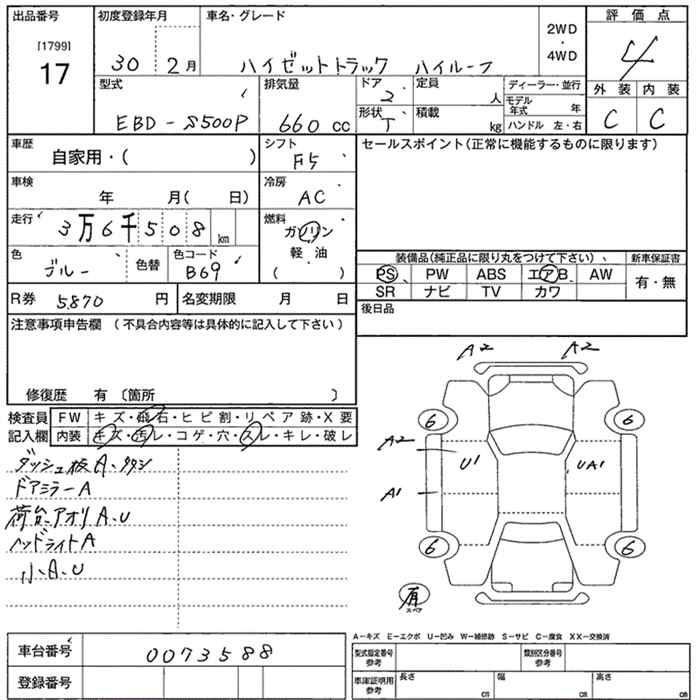 出品番号
[1799]
17
初度登録年月
30 2月
車名・グレード
ハイゼットトラック ハイルーフ
2WD
・
4WD
評価点
4
外装 内装
C C
型式
EBD-S500P
排気量
660 cc
ドア
2
定員
人
形状
T
積載
kg
ディーラー・並行
モデル年式 年
ハンドル 左・右
車歴
自家用・( )
シフト
F5
セールスポイント(正常に機能するものに限ります)
車検
年 月( 日)
冷房
AC
走行
3万6千508km
燃料
ガソリン
軽油
( )
色
ブルー
色替
色コード
B69
装備品(純正品に限り丸をつけて下さい)
新車保証書
PS PW ABS エアB AW
有・無
SR ナビ TV カワ
R券 5,870円
名変期限 月 日
後日品
注意事項申告欄(不具合内容等は具体的に記入して下さい)
修復歴 有〔箇所 〕
検査員記入欄
FW キズ・飛石・ヒビ割・リペア跡・X要
内装 キズ・汚レ・コゲ・穴・スレ・キレ・破レ
ダッシュ板A、
ドアミラーA
荷台、アオリA、U
ヘッドライトA
小A、U
A2 A2
6 6
A2
U1 UA1
A1
6 6
有
スペア
A-キズ E-エクボ U-凹み W-補修跡 S-サビ C-腐食 XX-交換済
車台番号
0073588
登録番号
型式指定番号
参考
類別区分番号
参考
車庫証明用
参考
長さ cm
幅 cm
高さ cm